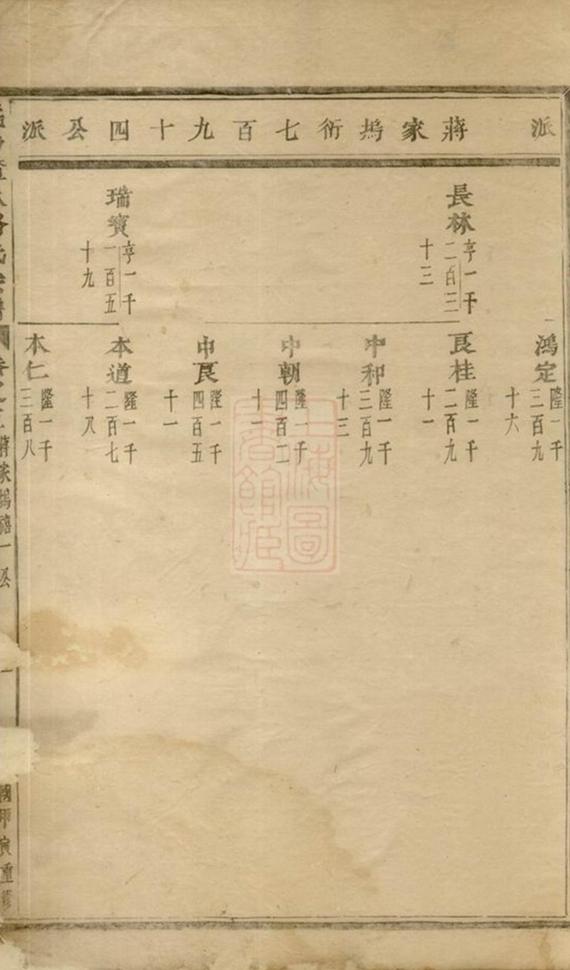 派
蔣家塢衍七百九十四公派
長林
亨一千
二百三
十三
瑞寶
亨一千
一百五
十九
鴻定
隆一千
三百九
十六
艮桂
隆一千
二百九
十一
中和
隆一千
三百九
十三
中朝
隆一千
四百二
中艮
隆一千
四百五
十一
本道
隆一千
二百七
十八
本仁
隆一千
三百八
上海圖書館藏